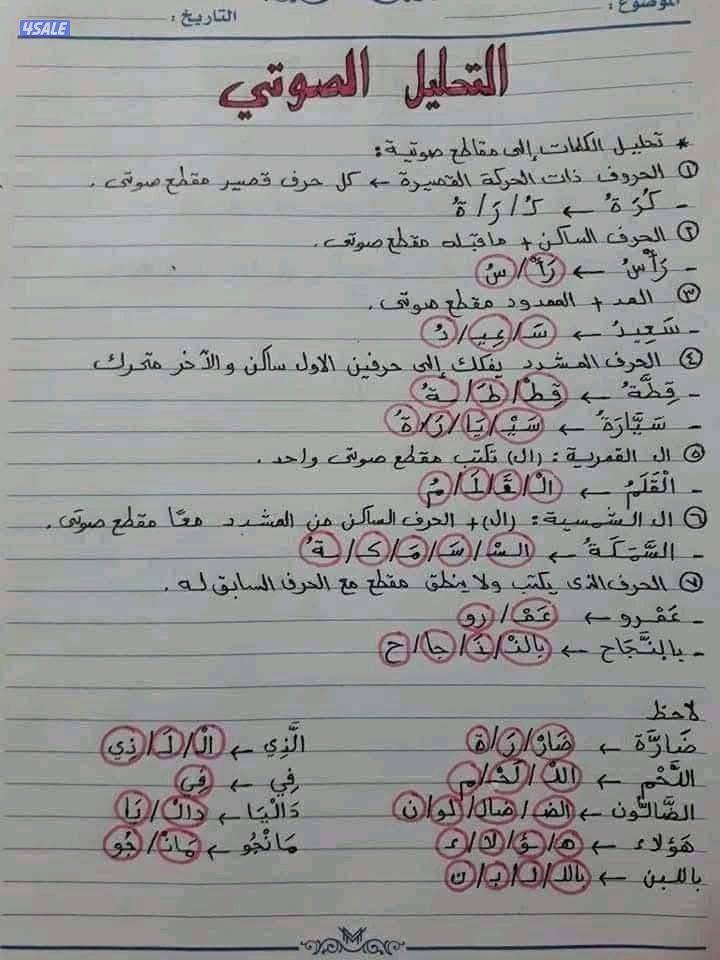 4SALE
الموضوع:
التاريخ:
التحليل الصوتي
* تحليل الكلمات إلى مقاطع صوتية:
١ الحروف ذات الحركة القصيرة ← كل حرف قصير مقطع صوتى .
- كُرَةُ ← كُ / رَ / ةُ
٢ الحرف الساكن + ماقبله مقطع صوتى .
- رَأْسُ ← رَأْ / سُ
٣ المد + الممدود مقطع صوتى .
- سَعِيدُ ← سَ / عِيـ / دُ
٤ الحرف المشدد يفكك إلى حرفين الاول ساكن والآخر متحرك
- قِطَّةُ ← قِطْ / طَـ / ـةُ
- سَيَّارَةُ ← سَيْـ / يَا / رَ / ةُ
٥ ال القمرية : (ال) تكتب مقطع صوتى واحد .
- الْقَلَمُ ← الْـ / قَـ / لَـ / مُ
٦ ال الشمسية : (ال) + الحرف الساكن من المشدد معًا مقطع صوتى .
- السَّمَكَةُ ← السْـ / سَـ / مَـ / كَـ / ـةُ
٧ الحرف الذى يكتب ولا ينطق مقطع مع الحرف السابق له .
- عَمْرو ← عَمْـ / رو
- بالنَّجَاح ← بالنْـ / نَـ / جا / ح
لاحظ
ضَارَّة ← ضَارْ / رَ / ة
الَّذِي ← الْ / لَـ / ذِي
اللَّحْم ← اللْـ / لَحْـ / م
فِي ← فِي
الضَّالُّون ← الضـ / ضال / لو / ن
دَالْيَا ← دالْـ / يَا
هَؤلاء ← هـ / ؤ / لا / ء
مَانْجُو ← مَانْـ / جُو
باللبن ← باللـ / لـ / بـ / ن